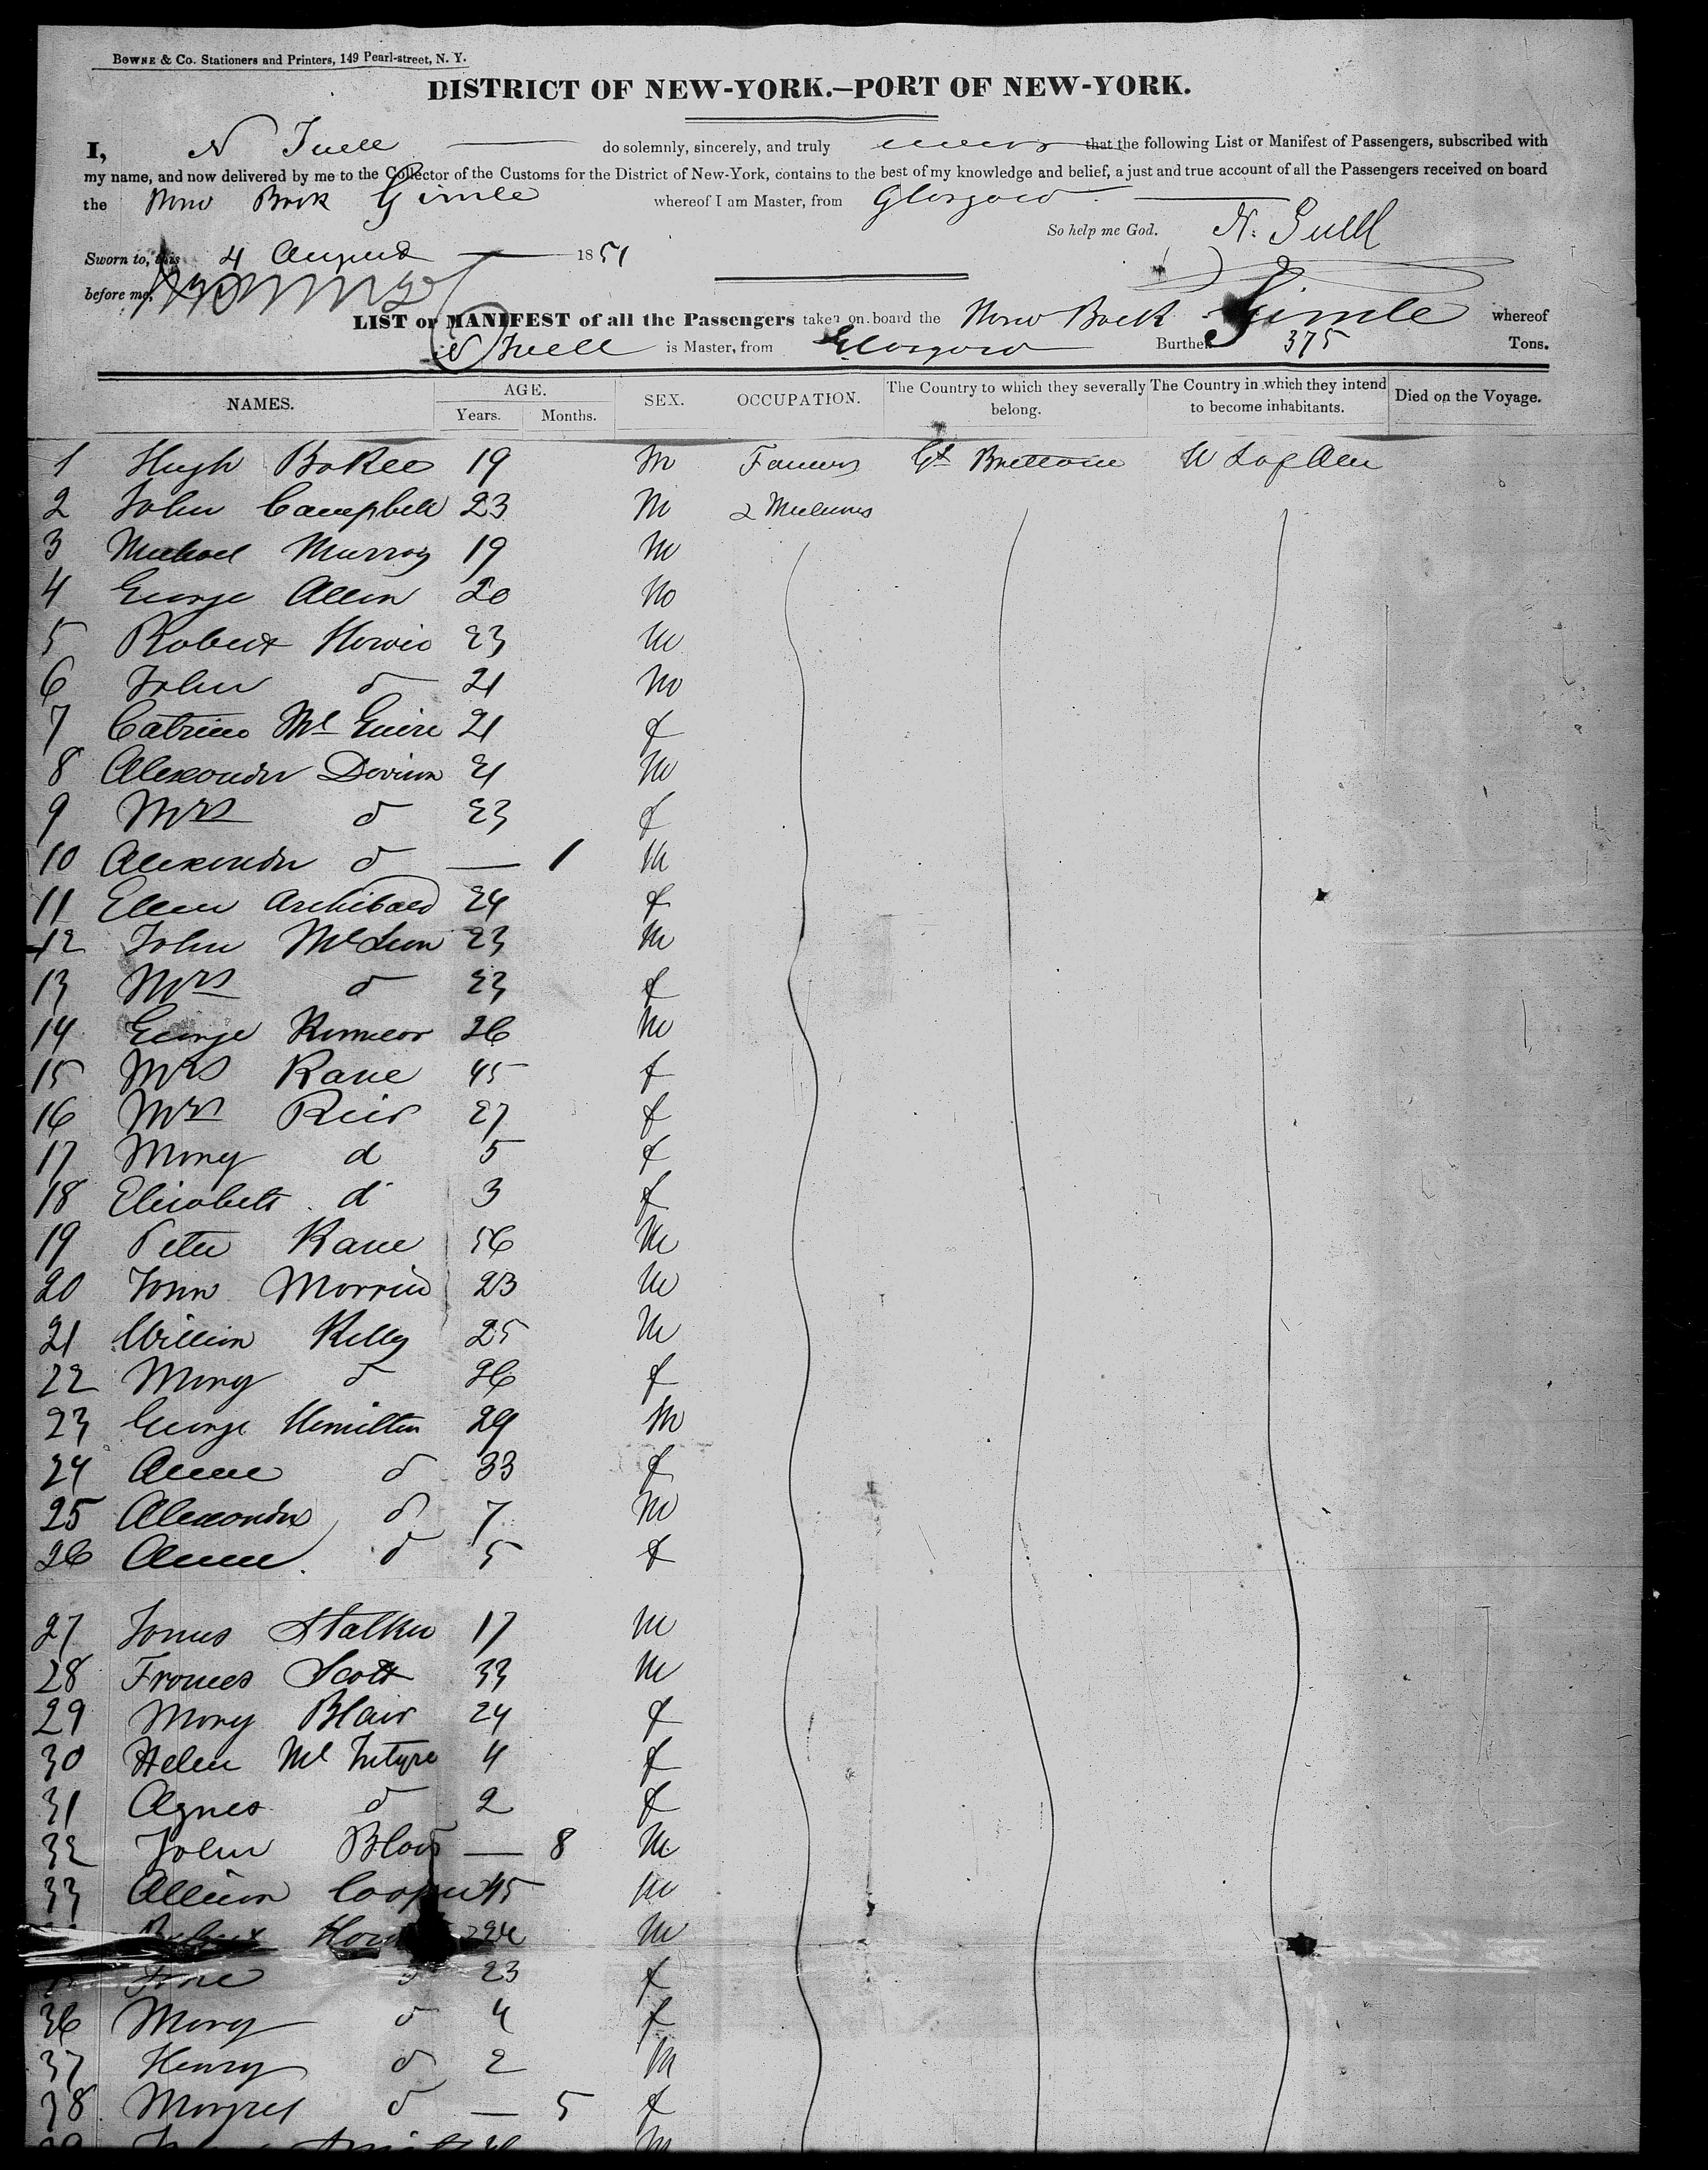 BOWNE & Co. Stationers and Printers, 149 Pearl-street, N. Y.
DISTRICT OF NEW-YORK.—PORT OF NEW-YORK.
I, N Tuell do solemnly, sincerely, and truly that the following List or Manifest of Passengers, subscribed with
my name, and now delivered by me to the Collector of the Customs for the District of New-York, contains to the best of my knowledge and belief, a just and true account of all the Passengers received on board
the Norw Bark Gimle whereof I am Master, from Glasgow
So help me God. N. Tuell
Sworn to, this 4 August 1851
before me,
LIST or MANIFEST of all the Passengers taken on board the Norw Bark Gimle whereof
N Tuell is Master, from Glasgow Burthen 375 Tons.
NAMES. AGE. Years. Months. SEX. OCCUPATION. The Country to which they severally belong. The Country in which they intend to become inhabitants. Died on the Voyage.
1 Hugh 19 M Farmers Gt Brittain U S of Am
2 John Campbell 23 M
3 Michael Murray 19 M
4 George Allen 20 M
5 Robert Howie 23 M
6 John do 21 M
7 Mc Guire 21 f
8 Alexander 21 M
9 Mrs do 23 f
10 Alexander do — 1 M
11 Ellen Archibald 24 f
12 John 23 M
13 Mrs do 23 f
14 George 26 M
15 Mrs Kane 45 f
16 Mrs 27 f
17 Mary d 5 f
18 Elisabeth d 3 f
19 Peter Kane 56 M
20 John Morris 23 M
21 William Kelly 25 M
22 Mary do 26 f
23 George Hamilton 29 M
24 Anne do 33 f
25 Alexander do 7 M
26 Anne do 5 f
27 James Stalker 17 M
28 Frances Scott 33 M
29 Mary Blair 24 f
30 Helen Mc Intyre 4 f
31 Agnes do 2 f
32 John Blair — 8 M
33 Cooper 45 M
Robert M
Jane do 23 f
36 Mary do 4 f
37 Henry do 2 M
38 Margret do — 5 f